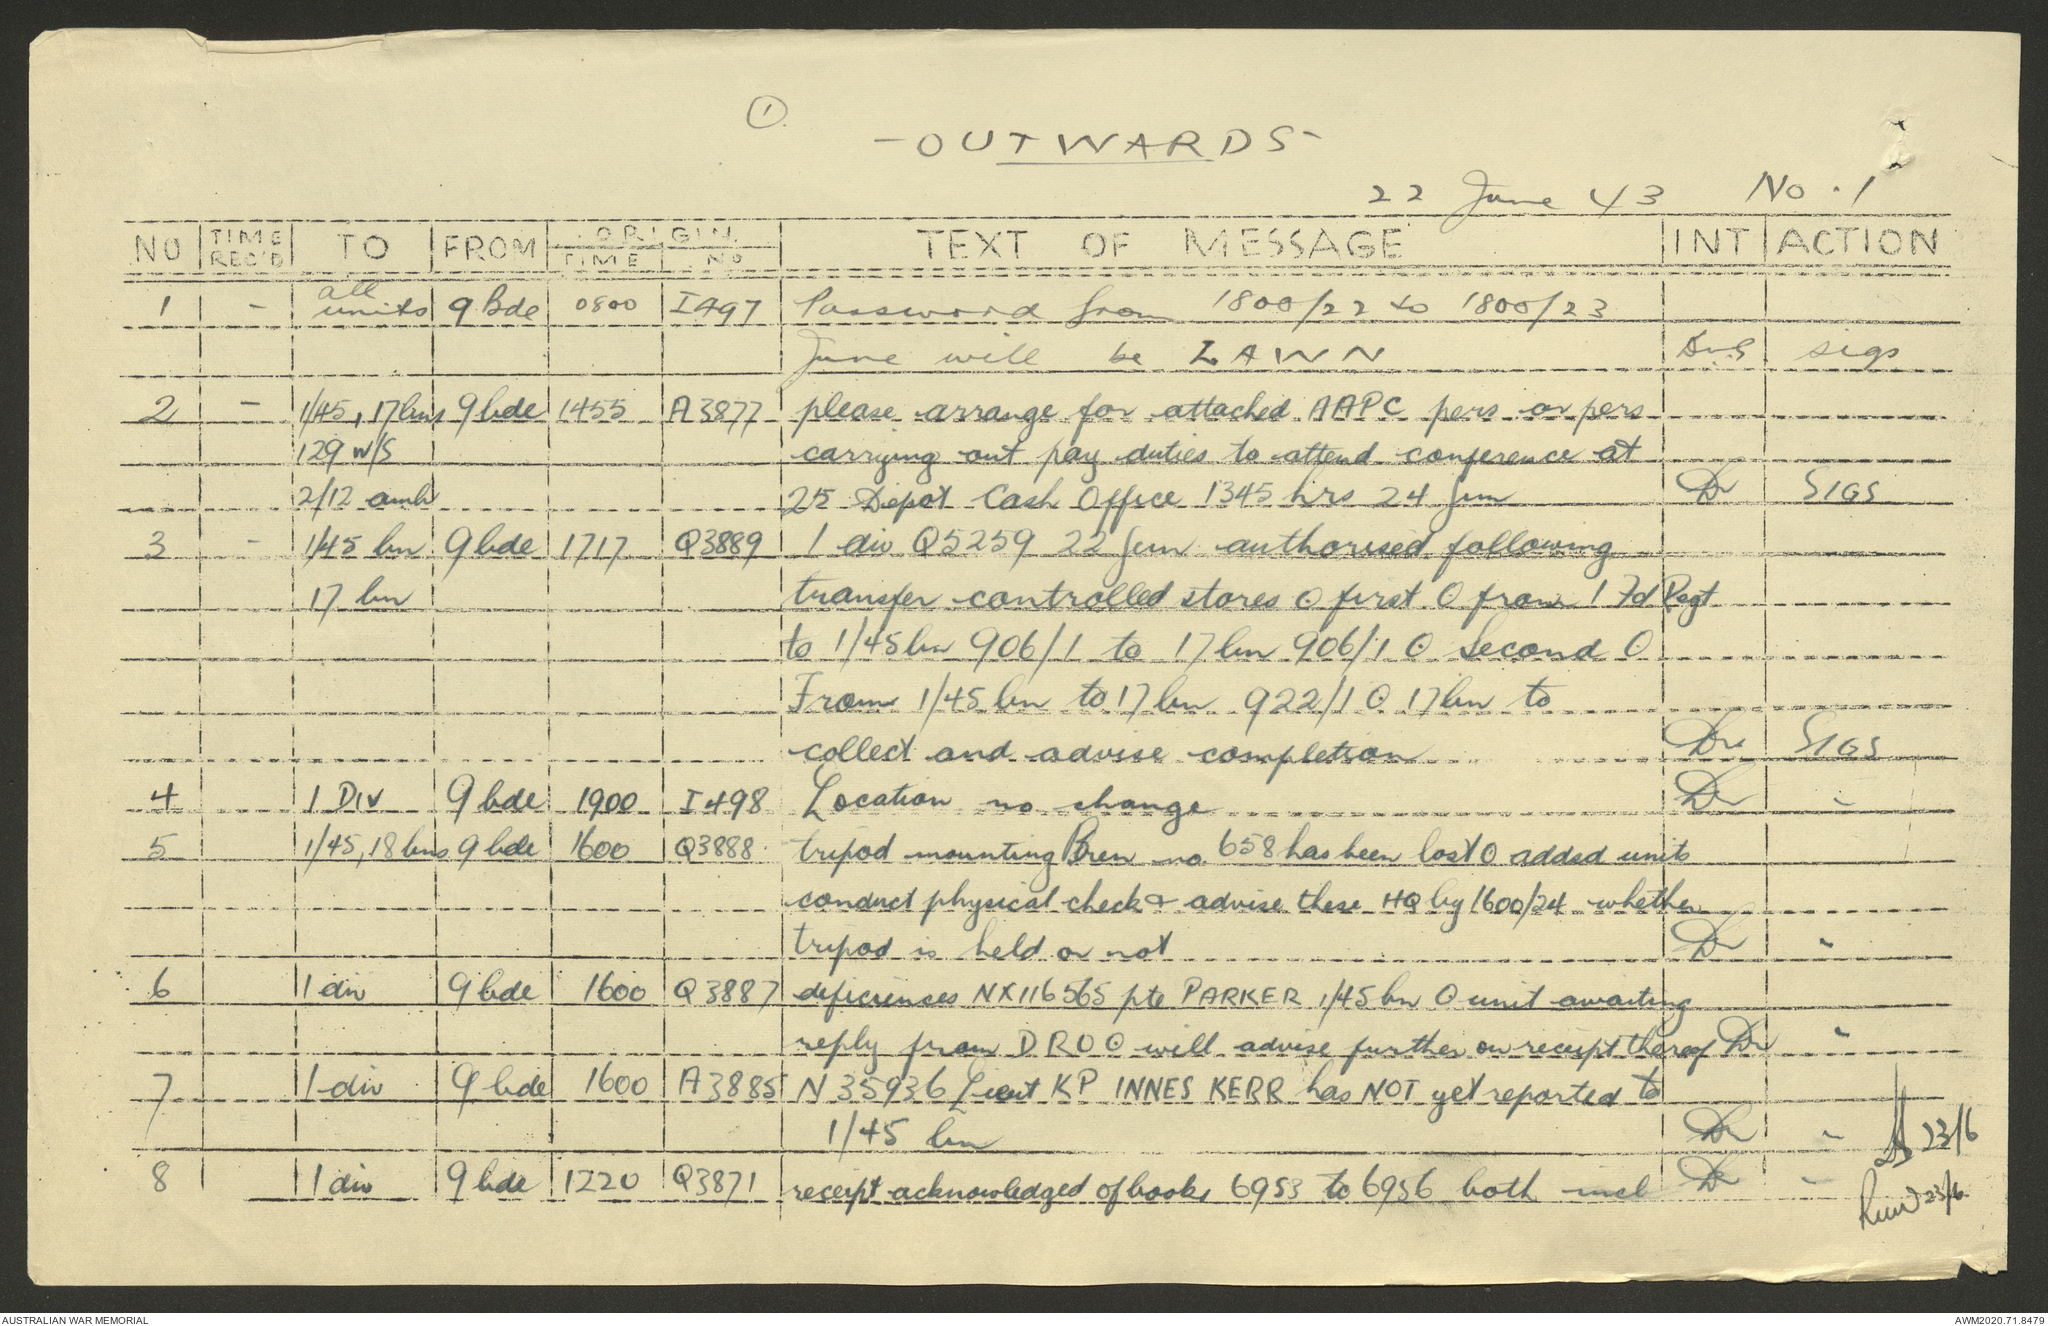 1.
- OUTWARDS -
22 June 43 No. 1
NO TIME REC'D TO FROM ORIGIN TIME NO TEXT OF MESSAGE INT ACTION
1 - all units 9 Bde 0800 I497 Password from 1800/22 to 1800/23
June will be LAWN sigs
2 - 1/45, 17 bns 9 bde 1455 A3877 please arrange for attached AAPC pers or pers
129 w/S carrying out pay duties to attend conference at
2/12 amb 25 Depot Cash Office 1345 hrs 24 Jun SIGS
3 - 1/45 bn 9 bde 1717 Q3889 1 div Q5259 22 Jun authorised following
17 bn transfer controlled stores O first O from 1 Fd Regt
to 1/45 bn 906/1 to 17 bn 906/1 O second O
From 1/45 bn to 17 bn 922/1 O 17 bn to
collect and advise completion SIGS
4 1 DIV 9 bde 1900 I498 Location no change "
5 1/45, 18 bns 9 bde 1600 Q3888 tripod mounting Bren no. 658 has been lost O added units
conduct physical check & advise these HQ by 1600/24 whether
tripod is held or not "
6 1 div 9 bde 1600 Q3887 deficiences NX116565 pte PARKER 1/45 bn O unit awaiting
reply from DRO O will advise further on receipt thereof "
7 1 div 9 bde 1600 A3885 N35936 Lieut KP INNES KERR has NOT yet reported to
1/45 bn " 23/6
8 1 div 9 bde 1220 Q3871 receipt acknowledged of books 6953 to 6956 both incl "
23/6
AUSTRALIAN WAR MEMORIAL AWM2020.71.8479